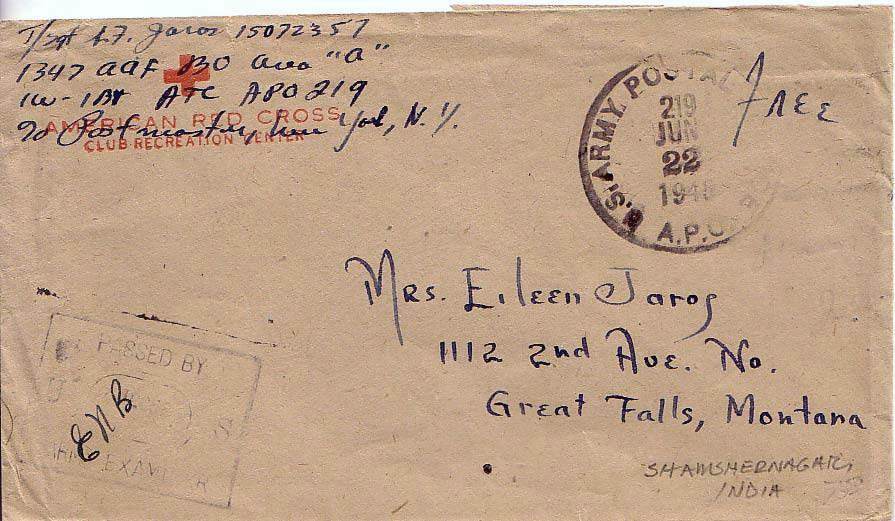 T/Sgt A.F. Jaros 15072357
1347 AAF BO area "A"
APO 219
AMERICAN RED CROSS
% Postmaster, New York, N.Y.
CLUB RECREATION CENTER
U.S. ARMY POSTAL
219
JUN
22
A.P.O.
Free
Mrs. Eileen Jaros
1112 2nd Ave. No.
Great Falls, Montana
PASSED BY
ENB
S
ARMY EXAMINER
SHAMSHERNAGAR,
INDIA